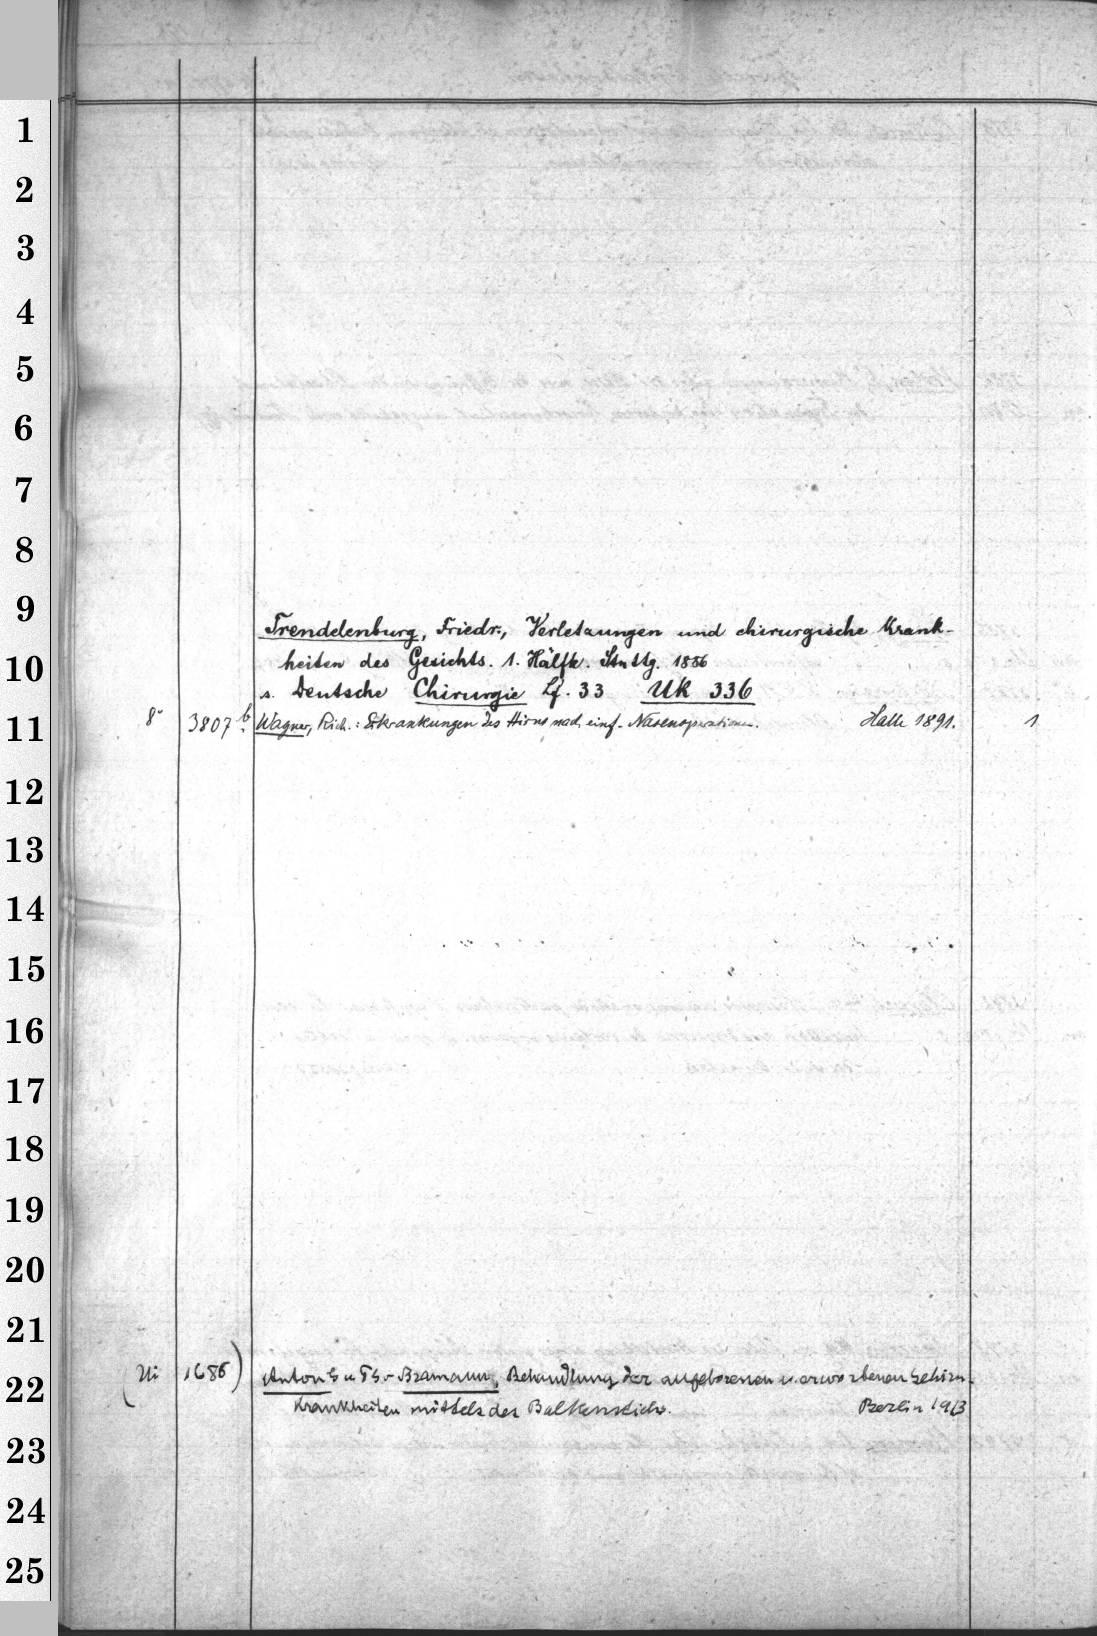 1
2
3
4
5
6
7
8
9
Trendelenburg, Friedr., Verletzungen und chirurgische Krank-
10
heiten des Gesichts. 1. Hälfte. Stuttg. 1886
s. Deutsche Chirurgie Lf. 33 Uk 336
11
8° 3807 b. Wagner, Rich.: Erkrankungen des Hirns nach einf. Nasenoperationen. Halle 1891. 1
12
13
14
15
16
17
18
19
20
21
22
(Ui 1686) Anton G u Fr. v. Bramann, Behandlung der angeborenen u. erworbenen Gehirn-
krankheiten mittels des Balkenstichs. Berlin 1913
23
24
25